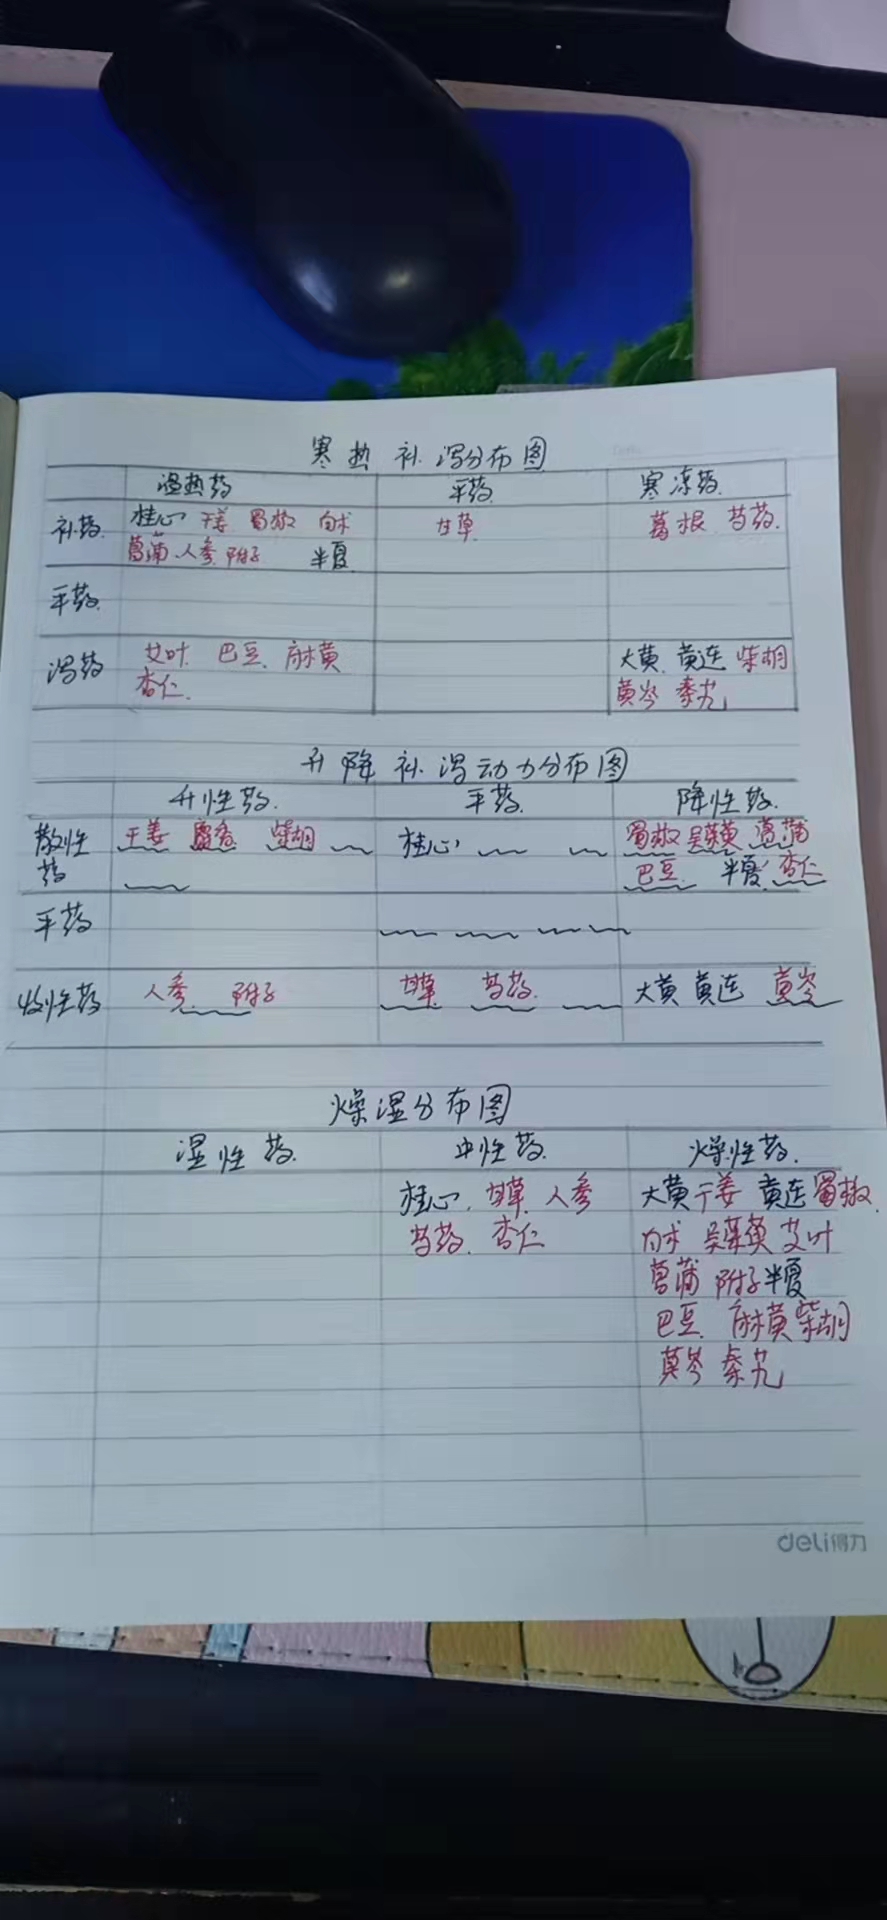 寒热补泻分布图
温热药 平药 寒凉药
补药 桂心 干姜 蜀椒 白术 甘草 葛根 芍药
菖蒲 人参 附子 半夏
平药
泻药 艾叶 巴豆 麻黄 大黄 黄连 柴胡
杏仁 黄岑 秦艽
升降补泻动力分布图
升性药 平药 降性药
散性药 干姜 麝香 柴胡 桂心 蜀椒 吴茱萸 菖蒲
巴豆 半夏 杏仁
平药
收性药 人参 附子 甘草 芍药 大黄 黄连 黄岑
燥湿分布图
湿性药 中性药 燥性药
桂心 甘草 人参 大黄 干姜 黄连 蜀椒
芍药 杏仁 白术 吴茱萸 艾叶
菖蒲 附子 半夏
巴豆 麻黄 柴胡
黄岑 秦艽
deli得力